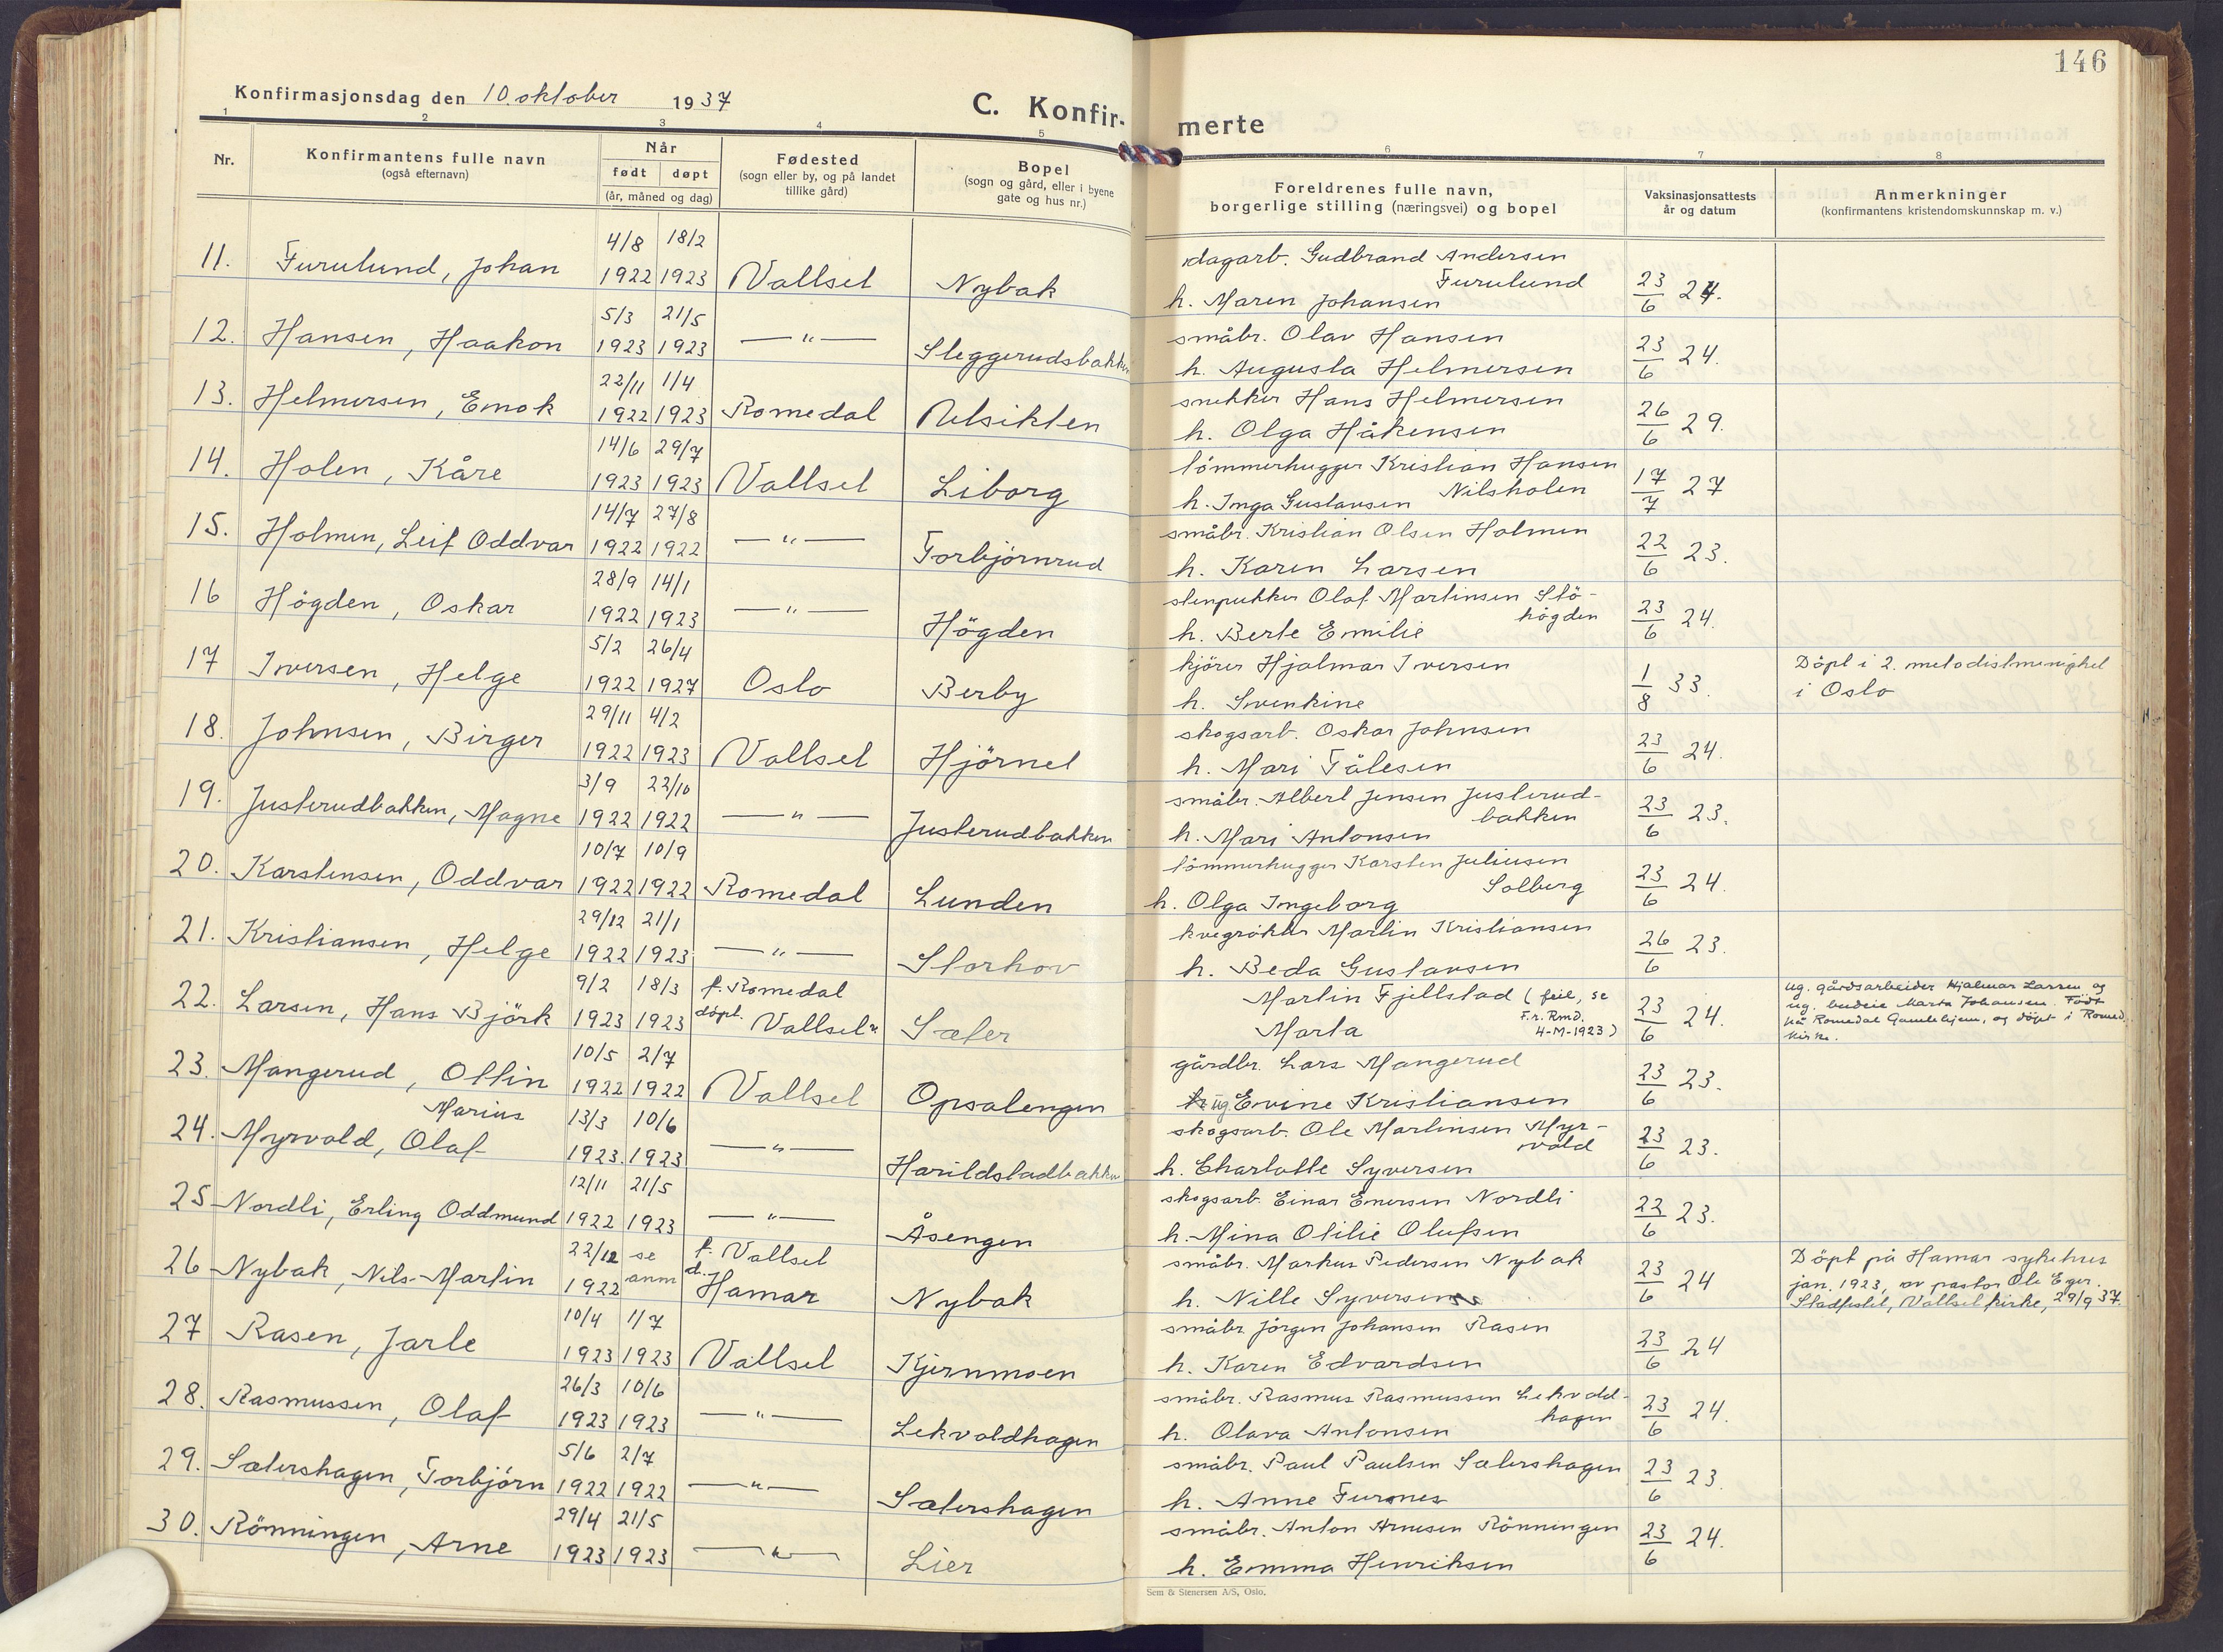 146
Konfirmasjonsdag den 10. oktober 1937
C. Konfir-
merte
1 2 3 4 5 6 7 8
Nr.
Konfirmantens fulle navn
(også efternavn)
Når
født døpt
(år, måned og dag)
Fødested
(sogn eller by, og på landet
tillike gård)
Bopel
(sogn og gård, eller i byene
gate og hus nr.)
Foreldrenes fulle navn,
borgerlige stilling (næringsvei) og bopel
Vaksinasjonsattests
år og datum
Anmerkninger
(konfirmantens kristendomskunnskap m. v.)
4/8 18/2 dagarb. Gudbrand Andersen
11. Furulund, Johan 1922 1923 Vallset Nybak Furulund 23/6 24.
h. Maren Johansen
5/3 21/5 småbr. Olav Hansen
12. Hansen, Haakon 1923 1923 —"— Sleggerudsbakken h. Augusta Helmersen 23/6 24.
22/11 1/4 snekker Hans Helmersen
13. Helmersen, Enok 1922 1923 Romedal Utsikten h. Olga Håkensen 26/6 29.
14/6 29/7 tömmerhugger Kristian Hansen
14. Holen, Kåre 1923 1923 Vallset Liborg Nilsholen 17/7 27
h. Inga Gustavsen
14/7 27/8 småbr. Kristian Olsen Holmen
15. Holmen, Leif Oddvar 1922 1922 —"— Torbjörnrud h. Karen Larsen 22/6 23.
28/9 14/1 stenpukker Olaf Martinsen Stö-
16 Högden, Oskar 1922 1923 —"— Högden högden 23/6 24.
h. Berte Emilie
5/2 26/4 kjörer Hjalmar Iversen Döpt i 2. metodistmenighet
17 Iversen, Helge 1922 1927 Oslo Berby h. Svenkine 1/8 33. i Oslo
29/11 4/2 skogsarb. Oskar Johnsen
18. Johnsen, Birger 1922 1923 Vallset Hjörnet h. Mari Tålesen 23/6 24.
3/9 22/10 småbr. Albert Jensen Justerud-
19. Justerudbakken, Magne 1922 1922 —"— Justerudbakken bakken 23/6 23.
h. Mari Antonsen
10/7 10/9 tömmerhugger Karsten Juliusen
20. Karstensen, Oddvar 1922 1922 Romedal Lunden Solberg 23/6 24.
h. Olga Ingeborg
29/12 21/1 kvegrökter Martin Kristiansen
21. Kristiansen, Helge 1922 1923 —"— Storhov h. Beda Gustavsen 26/6 23.
9/2 18/3 f. Romedal Martin Fjellstad (feil, se F.r. Rmd. 4-M-1923)
22. Larsen, Hans Björk 1923 1923 döpt. Vallset " Sæter Marta 23/6 24.
ug. gårdsarbeider Hjalmar Larsen og
ug. budeie Marta Johansen. Födt
på Romedal Gamlehjem, og döpt i Romed.
kirke.
10/5 2/7 gårdbr. Lars Mangerud
23. Mangerud, Ottin 1922 1922 Vallset Opsalengen ug. Evine Kristiansen 23/6 23.
Marius 13/3 10/6 skogsarb. Ole Martinsen Myr-
24. Myrvold, Olaf 1923. 1923 —"— Harildstadbakken vold 23/6 23.
h. Charlotte Syversen
12/11 21/5 skogsarb. Einar Enersen Nordli
25 Nordli, Erling Oddmund 1922 1923 —"— Åsengen h. Mina Otilie Olufsen 22/6 23.
22/12 se f. Vallset småbr. Markus Pedersen Nybak
26 Nybak, Nils-Martin 1922 anm d. Hamar Nybak h. Nille Syversen 23/6 24
Döpt på Hamar sykehus
jan. 1923, av pastor Ole Eger.
Stadfestet, Vallset kirke, 29/9 37.
10/4 1/7 småbr Jörgen Johansen Rasen
27 Rasen, Jarle 1923 1923 Vallset Kjernmoen h. Karen Edvardsen 23/6 24
26/3 10/6 småbr. Rasmus Rasmussen Lekvold-
28. Rasmussen, Olaf 1923 1923 —"— Lekvoldhagen hagen 23/6 24.
h. Olava Antonsen
5/6 2/7 småbr. Paul Paulsen Sætershagen
29. Sætershagen, Torbjörn 1922 1922 —"— Sætershagen h. Anne Furones 23/6 23.
29/4 21/5 småbr. Anton Arnesen Rönningen
30. Rönningen, Arne 1923 1923 —"— Lier h. Emma Henriksen 23/6 24.
Sem & Stenersen A/S, Oslo.